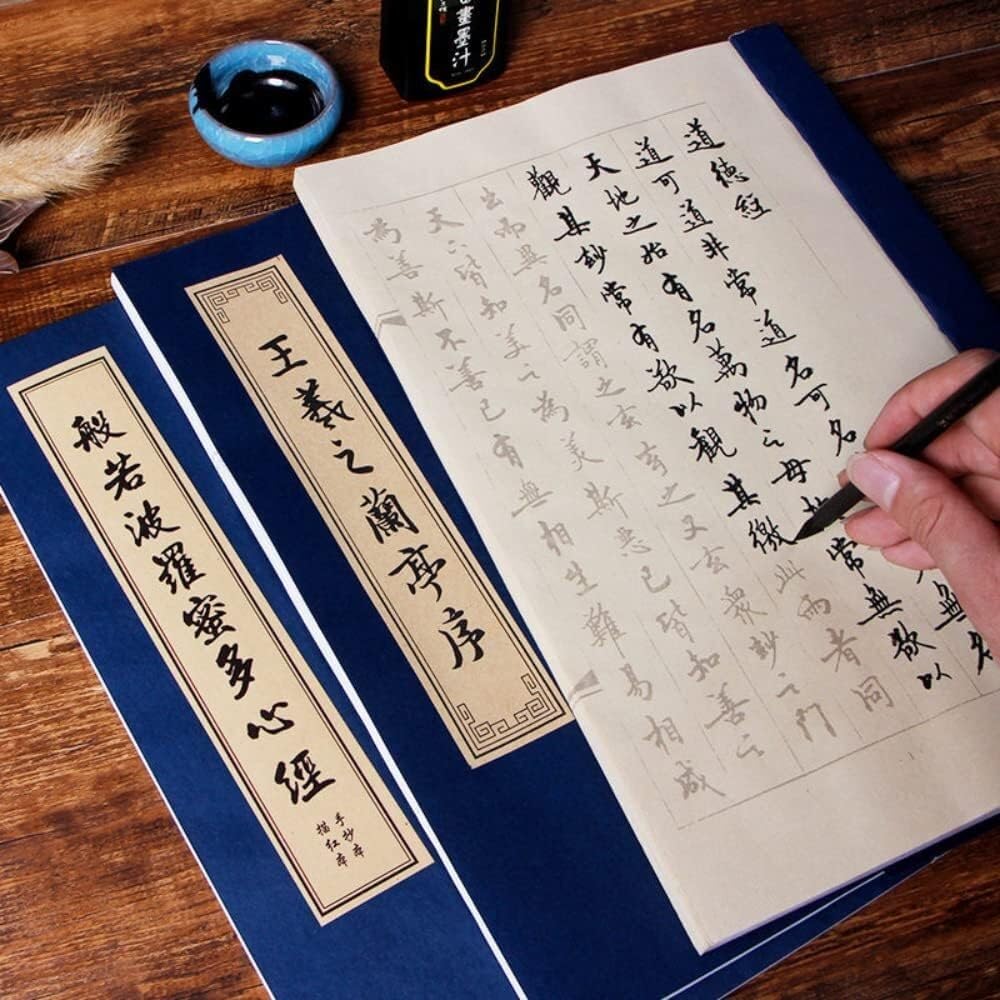 畫墨汁
道德經
道可道非常道名可名 無名
天地之始有名萬物之母 常無欲以
觀其妙常有欲以觀其徼此兩者同
出而異名同謂之玄玄之又玄眾妙之門
天下皆知美之為美斯惡已皆知善之
為善斯不善已有無相生難易相成
王羲之蘭亭序
般若波羅蜜多心經
手抄本
描紅本